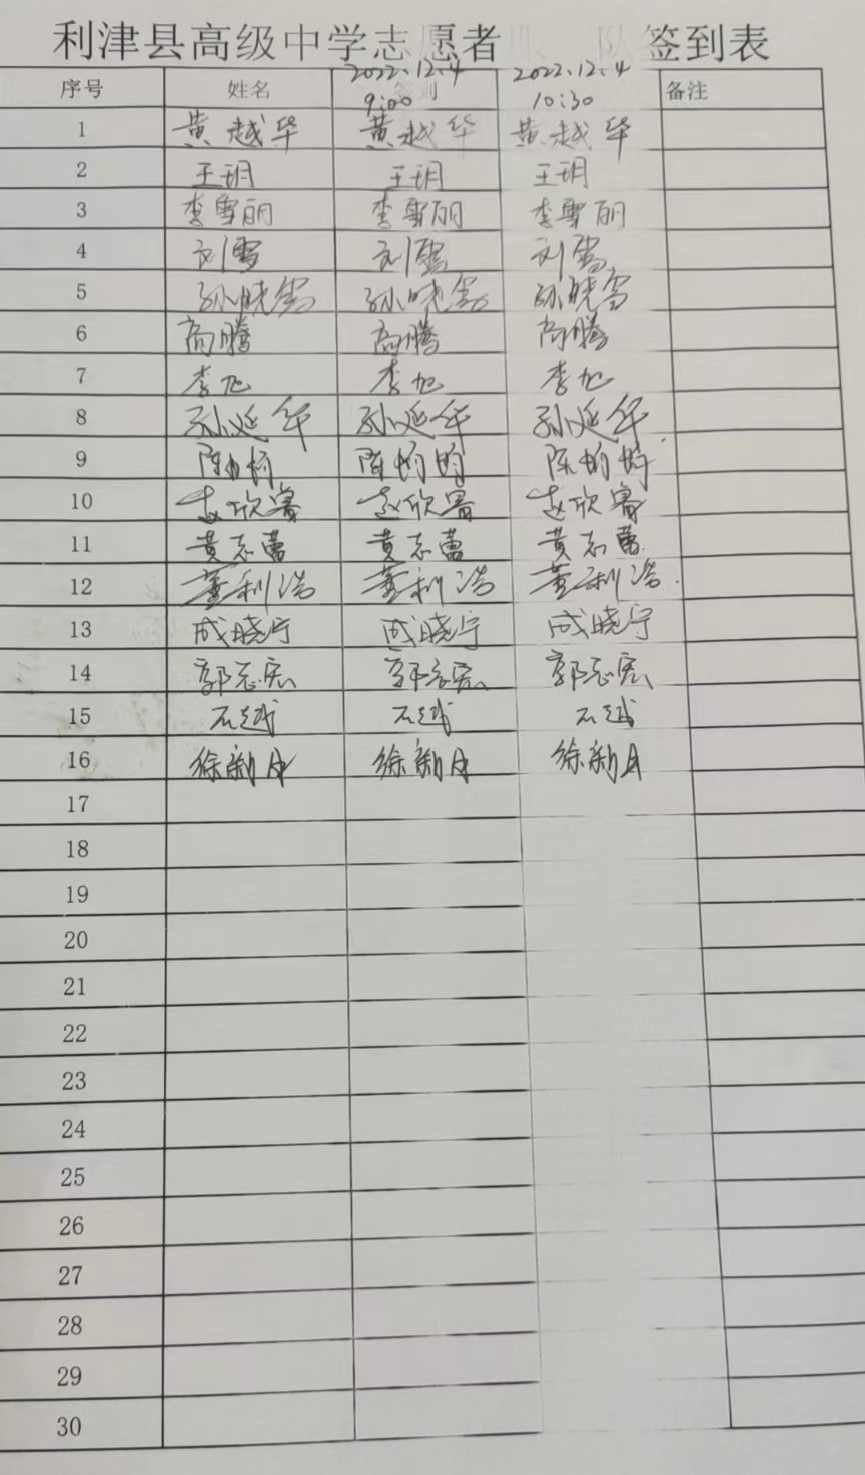 利津县高级中学志愿者 队签到表
序号 姓名 2022.12.4 9:00 2022.12.4 10:30 备注
1 黄越华 黄越华 黄越华
2 王玥 王玥 王玥
3 李雪丽 李雪丽 李雪丽
4 刘雪 刘雪 刘雪
5 孙晓雪 孙晓雪 孙晓雪
6 高腾 高腾 高腾
7 李旭 李旭 李旭
8 孙延华 孙延华 孙延华
9 陈
10 赵欣
11 黄志蕾 黄志蕾 黄志蕾
12 董利浩 董利浩 董利浩
13 成晓宁 成晓宁 成晓宁
14 郭志宏 郭志宏 郭志宏
15 石越 石越 石越
16 徐新月 徐新月 徐新月
17
18
19
20
21
22
23
24
25
26
27
28
29
30